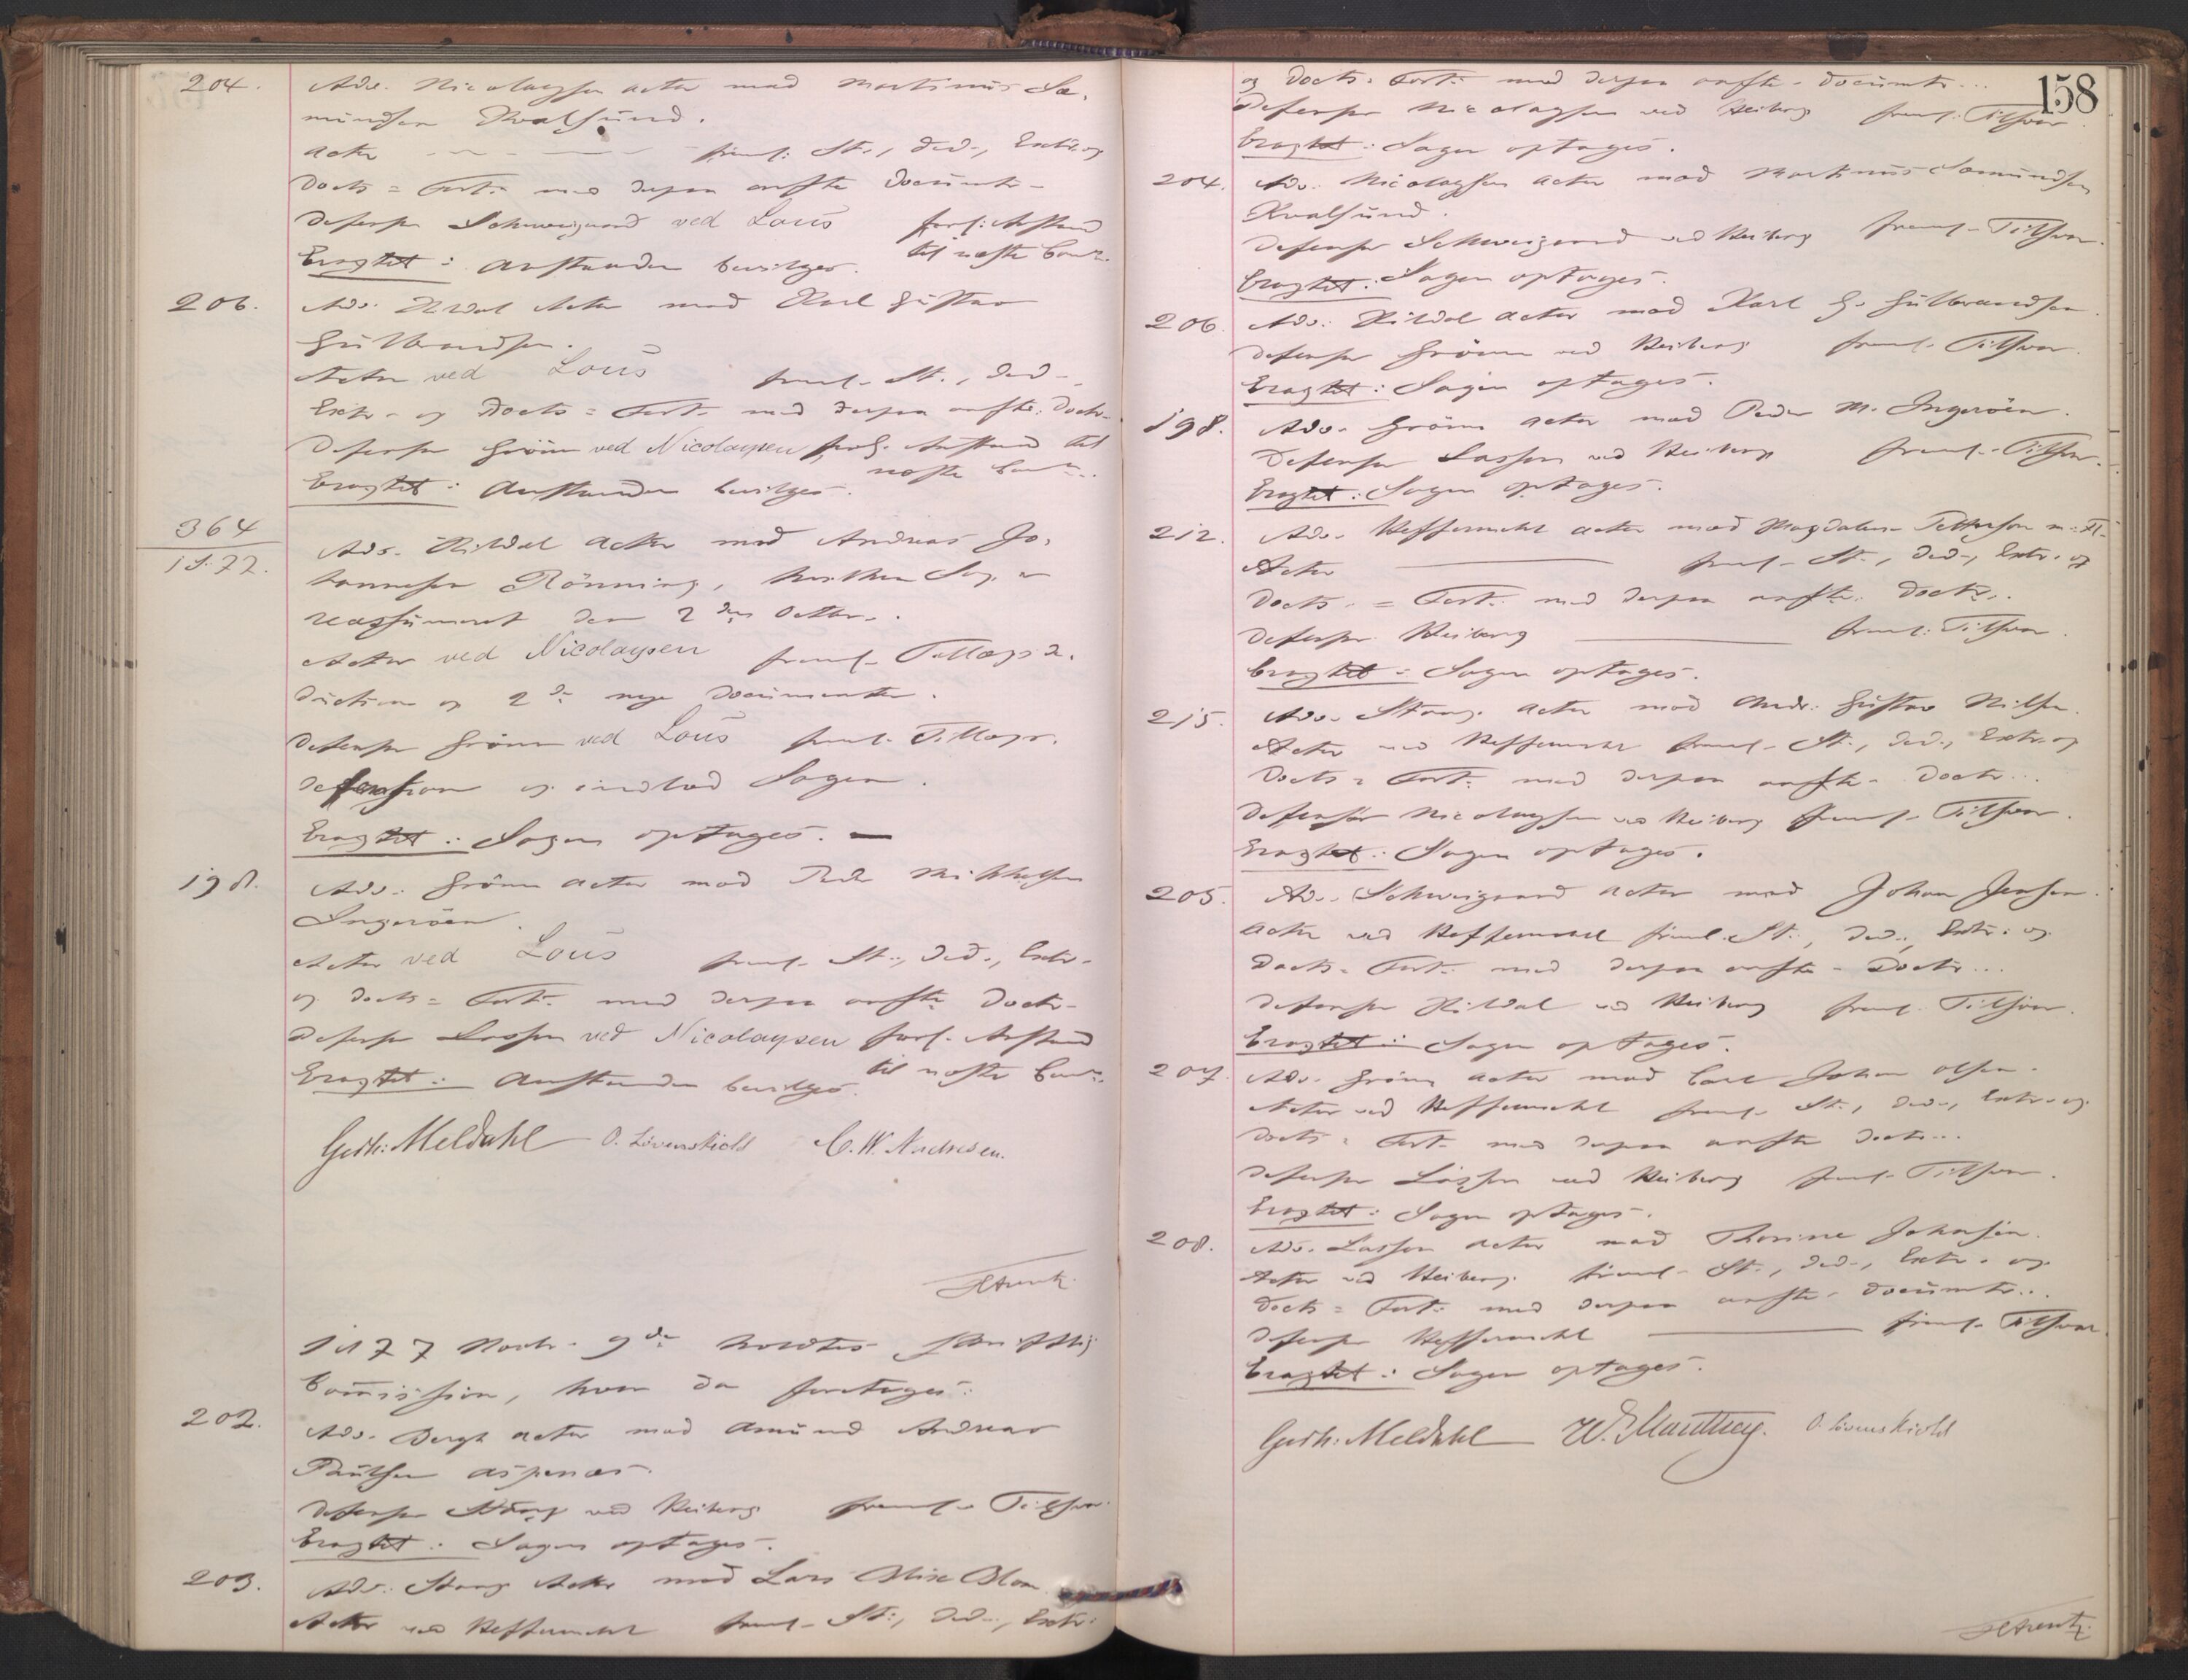 204. Adv. Nicolaysen actor mod Martinus Sa-
mundsen Kvalsund.
Actor — — — freml: St., Ded., Extr. og
Docts = Fort: med derpaa anførte Documenter
Defensor Schweigaard ved Lous forl: Anstand
Eragtet: Anstanden bevilges. til næste Comn.
206. Adv. Hildal Actor mod Karl Gustav
Gulbrandsen.
Actor ved Lous freml. St., Ded.,
Extr. og Docts = Fort. med derpaa anførte Doctr.
Defensor Grönn ved Nicolaysen forl. Anstand til
Eragtet: Anstanden bevilges. næste Comn.
364
1S.77. Adv. Hildal Actor mod Andreas Jo-
hannesen Rönning, hvilken Sag er
reassumeret den 2den Octbr.
Actor ved Nicolaysen freml. Tillægsde-
duction og 2de nye Documenter.
Defensor Grönn ved Lous freml. Tillægs-
defension og indlod Sagen.
Eragtet: Sagen optages. —
198. Adv. Grönn actor mod Peder Mikkelsen
Ingeröen.
Actor ved Lous freml. St., Ded., Extr.
og Docts = Fort. med derpaa anførte Doctr.
Defensor Lasson ved Nicolaysen forl. Anstand
Eragtet: Anstanden bevilges. til næste Comn.
Gerh: Meldahl O. Lövenskiold C. W. Andresen.
1877 Novbr. 9de holdtes skriftlig
Commission, hvor da foretoges:
202. Adv. Bergh actor mod Amund Andreas
Paulsen Aspenæs.
Defensor Stang ved Heiberg freml. Tilsvar.
Eragtet: Sagen optages.
203. Adv. Stang Actor mod Lars Blom
Actor ved Heffermehl freml. St:, Ded., Extr:
158
og Docts = Fort: med derpaa anførte Documtr...
Defensor Nicolaysen ved Heiberg freml. Tilsvar.
Eragtet: Sagen optages.
204. Adv. Nicolaysen actor mod Martinus Samundsen
Kvalsund.
Defensor Schweigaard ved Heiberg freml. Tilsvar.
Eragtet: Sagen optages.
206. Adv. Hildal actor mod Karl G. Gulbrandsen.
Defensor Grönn ved Heiberg freml. Tilsvar.
Eragtet: Sagen optages.
198. Adv. Grönn actor mod Peder M. Ingeröen.
Defensor Lasson ved Heiberg freml. Tilsvar.
Eragtet: Sagen optages.
212. Adv. Heffermehl actor mod Magdalena Pettersen m: Fl.
Actor ——— freml. St., Ded., Extr. og
Docts. = Fort. med derpaa anførte Doctr..
Defensor Heiberg ——— freml: Tilsvar.
Eragtet: Sagen optages.
215. Adv. Stang actor mod Andr: Gustav Nilsen.
Actor ved Heffermehl freml. St., Ded., Extr. og
Docts = Fort: med derpaa anførte Doctr...
Defensor Nicolaysen ved Heiberg freml. Tilsvar.
Eragtet: Sagen optages.
205. Adv. Schweigaard actor mod Johan Jensen.
Actor ved Heffermehl freml. St:, Ded., Extr. og
Docts = Fort: med derpaa anførte Doctr...
Defensor Hildal ved Heiberg freml. Tilsvar.
Eragtet: Sagen optages.
207. Adv. Grönn actor mod Carl Johan Olsen.
Actor ved Heffermehl freml. St., Ded., Extr. og
Docts = Fort. med derpaa anførte Doctr...
Defensor Lasson ved Heiberg freml. Tilsvar.
Eragtet: Sagen optages.
208. Adv. Lasson actor mod Thorine Johnsen.
Actor ved Heiberg freml. St., Ded., Extr. og
Docts = Fort: med derpaa anførte Documtr...
Defensor Heffermehl ——— freml. Tilsvar.
Eragtet: Sagen optages.
Gerh: Meldahl W. S. Manthey. O. Lövenskiold